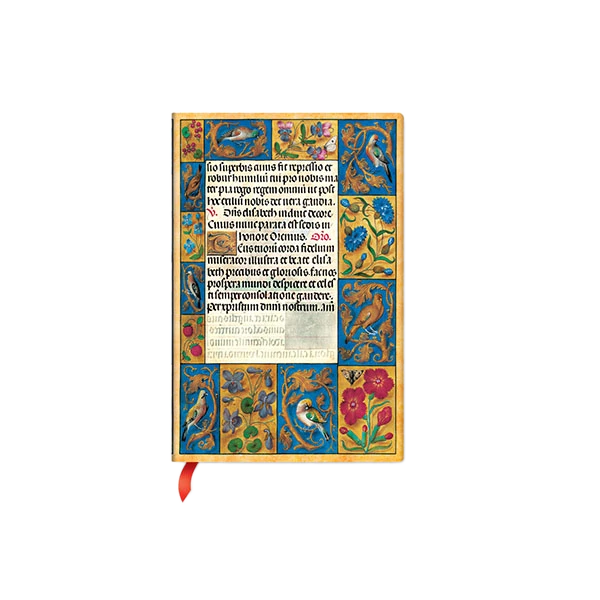 sio superbis anus fit repressio et
robur humiliū tui pro nobis ma
ter pia rogo regem omniū ut post
hoc exiliū nobis det vera gaudia.
V. Dn̄s elisabeth induit decore
Cuius nunc parata est sedis in
honore Oremus. Oro.
Eus tuorū corda fidelium
miserator illustra et beate elisa
beth precibus et gloriosis. fac nos
prospera mundi despicere et celes
ti semper consolatione gaudere.
Per xpristum dnm nostrum. Am